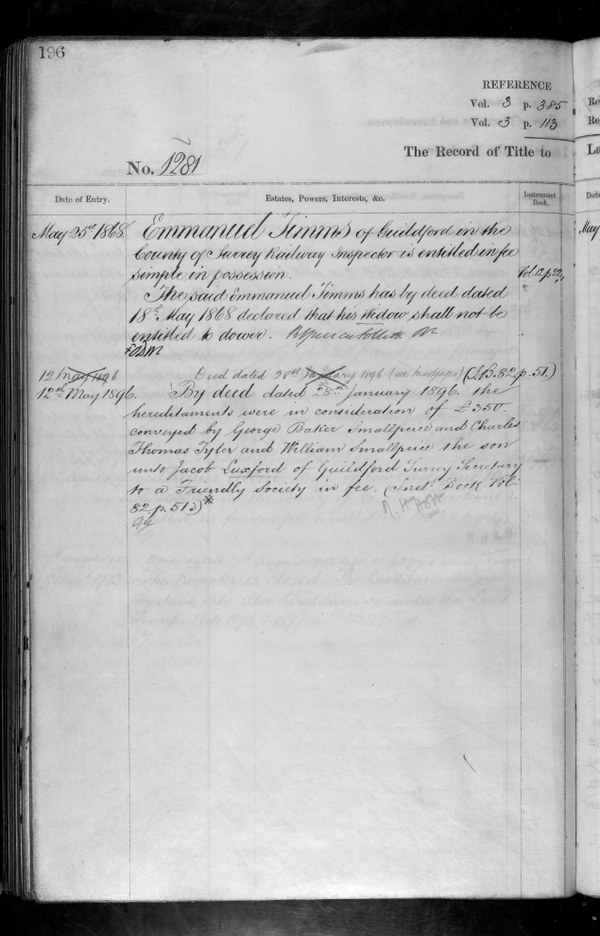 196
REFERENCE
Vol. 3 p. 385
Vol. 3 p. 113
No. 1281
The Record of Title to
Date of Entry.
Estates, Powers, Interests, &c.
Instrument Book.
May 25th 1868.
Emmanuel Timms of Guildford in the
County of Surrey Railway Inspector is entitled in fee
simple in possession.
Vol. 12. p.
The said Emmanuel Timms has by deed dated
18th May 1868 declared that his Widow shall not be
entitled to dower.
12 May 1896
Deed dated 28th January 1896 (I.B. 82. p. 51.)
12th May 1896.
By deed dated 28th January 1896. the
hereditaments were in consideration of £350.
conveyed by George Baker Smallpeice and Charles
Thomas Tyler and William Smallpeice the son
unto Jacob Luxford of Guildford Surrey Secretary
to a Friendly Society in fee. (Inst. Book Vol:
82. p. 512)*